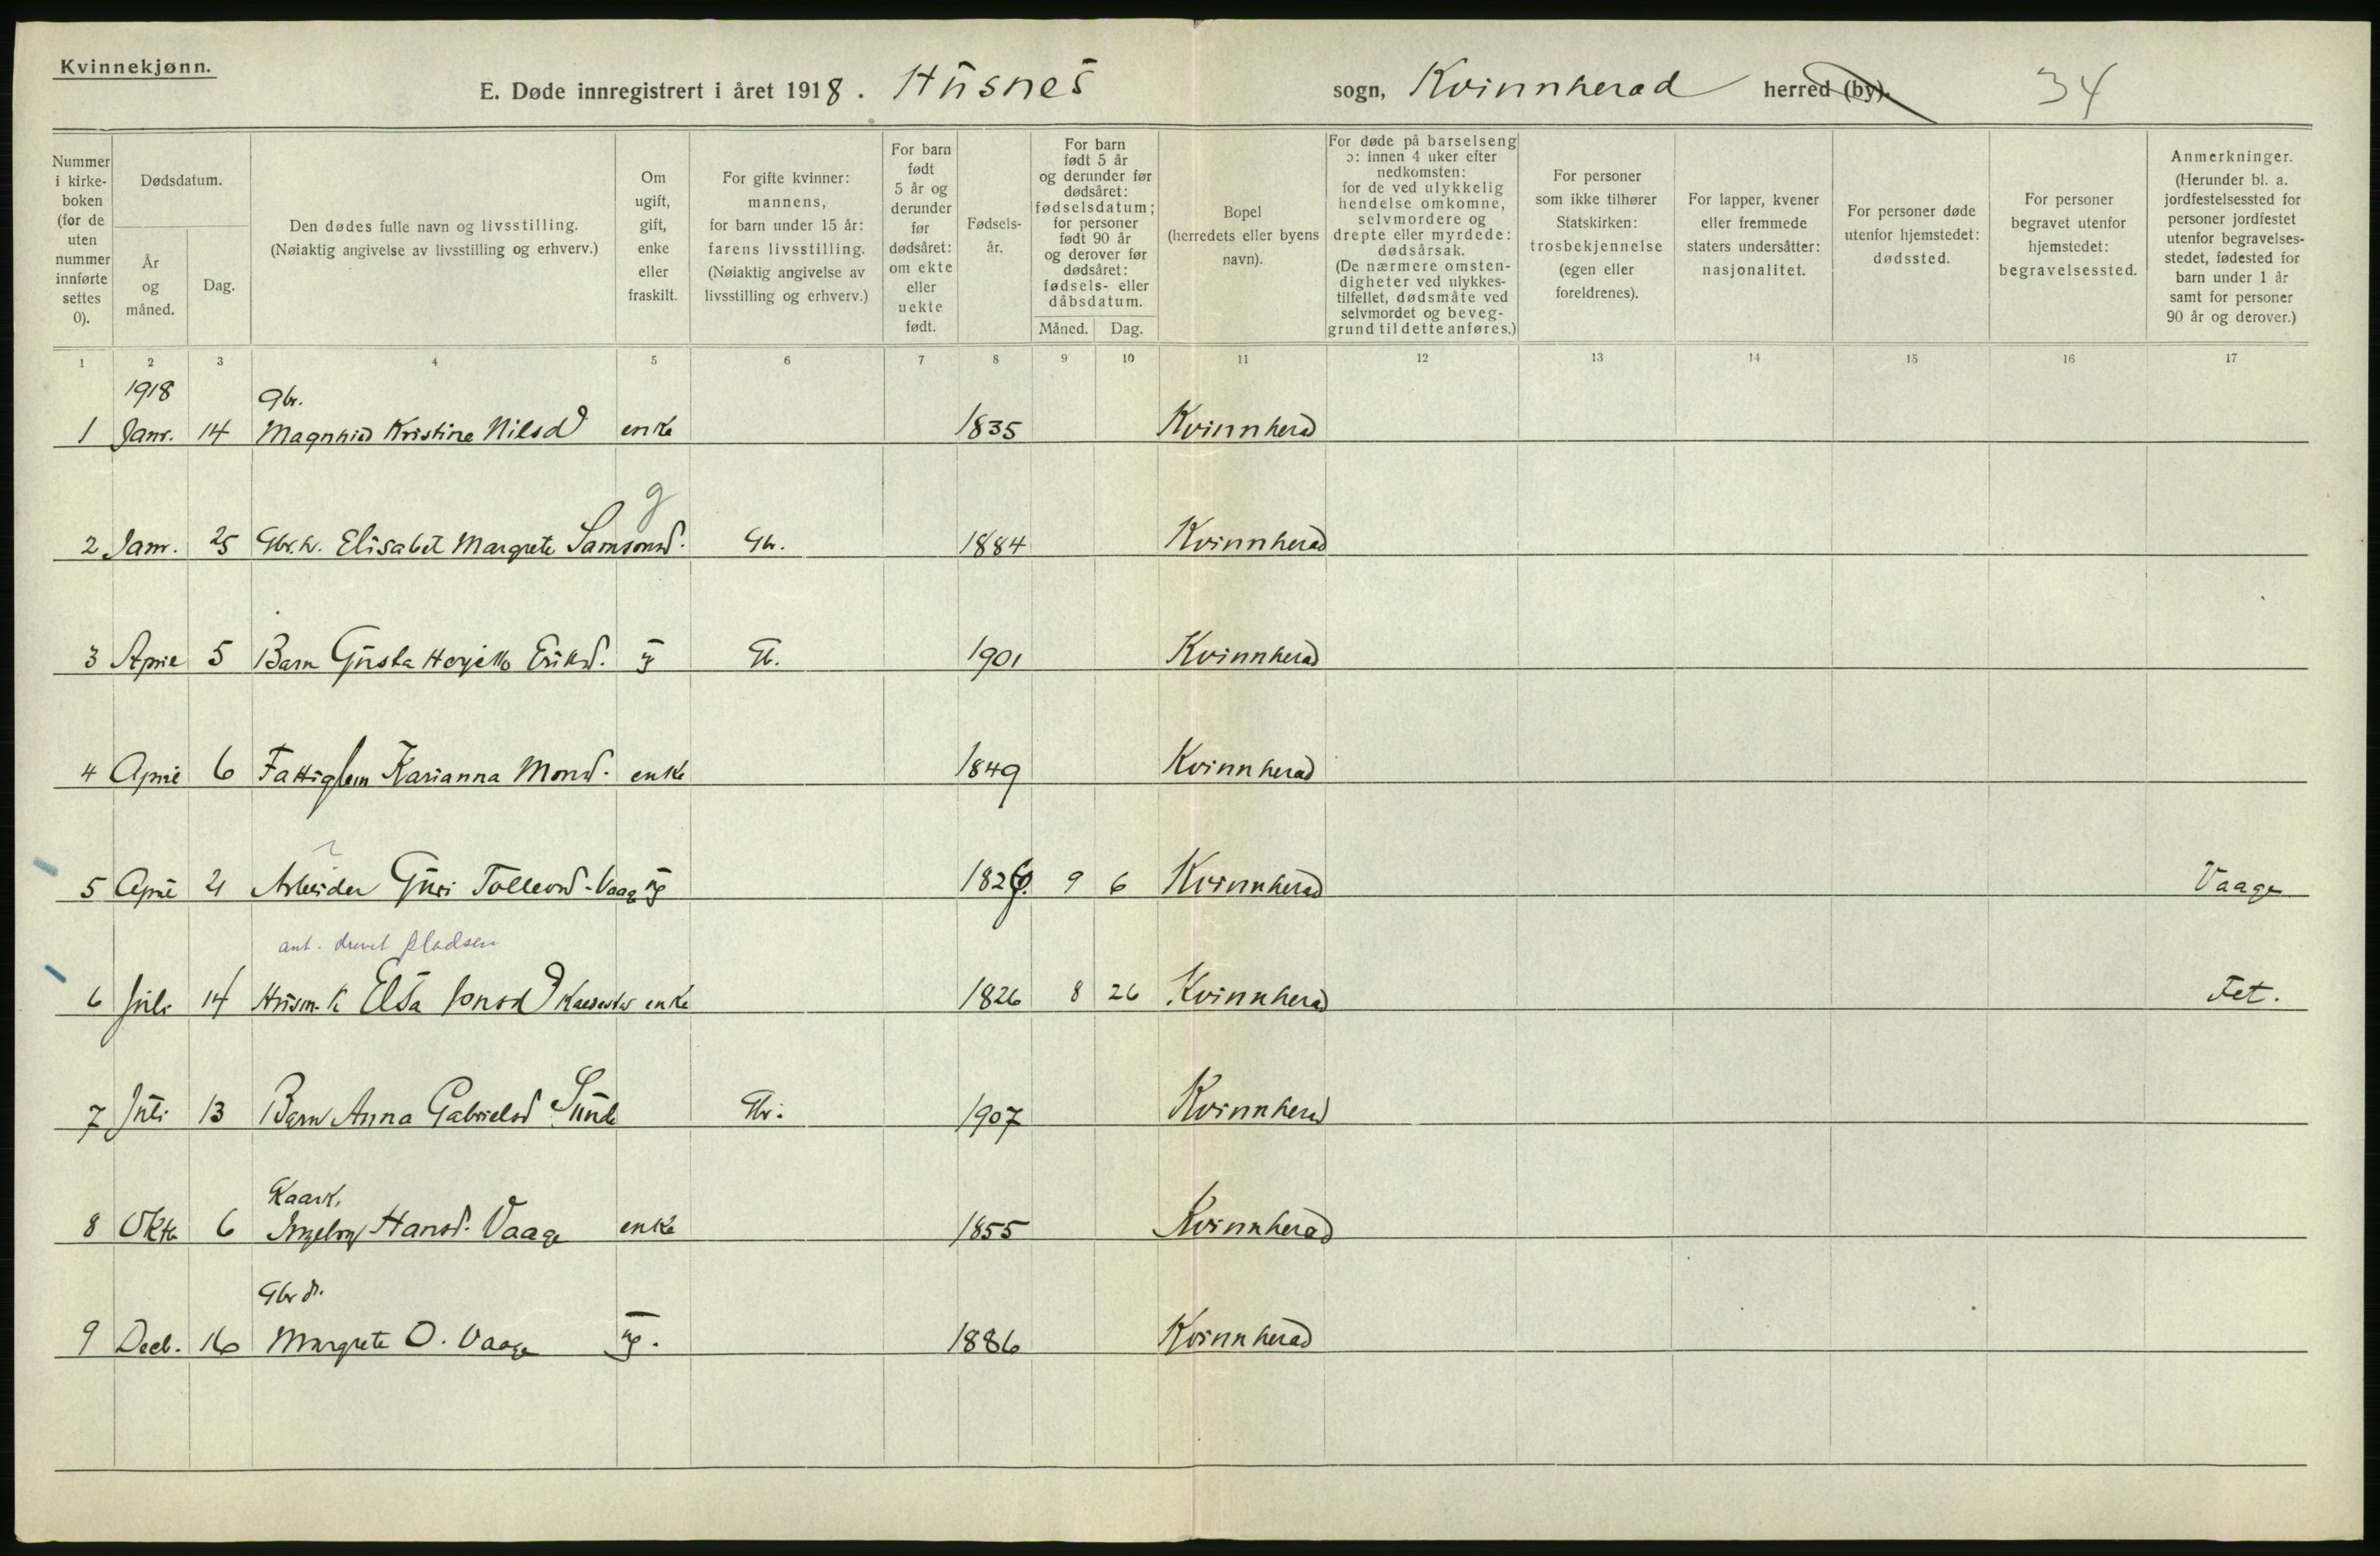 Kvinnekjønn.
E. Døde innregistrert i året 1918. Husnes sogn, Kvinnherad herred (by). 34
Nummer i kirkeboken (for de uten nummer innførte settes 0).
Dødsdatum.
År og måned.
Dag.
Den dødes fulle navn og livsstilling.
(Nøiaktig angivelse av livsstilling og erhverv.)
Om ugift, gift, enke eller fraskilt.
For gifte kvinner: mannens, for barn under 15 år: farens livsstilling. (Nøiaktig angivelse av livsstilling og erhverv.)
For barn født 5 år og derunder før dødsåret: om ekte eller uekte født.
Fødsels-år.
For barn født 5 år og derunder før dødsåret: fødselsdatum; for personer født 90 år og derover før dødsåret: fødsels- eller dåbsdatum.
Måned. Dag.
Bopel (herredets eller byens navn).
For døde på barselseng ɔ: innen 4 uker efter nedkomsten: for de ved ulykkelig hendelse omkomne, selvmordere og drepte eller myrdede: dødsårsak. (De nærmere omsten-digheter ved ulykkes-tilfellet, dødsmåte ved selvmordet og beveg-grund til dette anføres.)
For personer som ikke tilhører Statskirken: trosbekjennelse (egen eller foreldrenes).
For lapper, kvener eller fremmede staters undersåtter: nasjonalitet.
For personer døde utenfor hjemstedet: dødssted.
For personer begravet utenfor hjemstedet: begravelsessted.
Anmerkninger. (Herunder bl. a. jordfestelsessted for personer jordfestet utenfor begravelses-stedet, fødested for barn under 1 år samt for personer 90 år og derover.)
1 2 3 4 5 6 7 8 9 10 11 12 13 14 15 16 17
1918 Gbr.
1 Janr. 14 Magnhild Kristine Nilsd enke 1835 Kvinnherad
g
2 Janr. 25 Gbr.k. Elisabet Margrete Samsonsd. Gbr. 1884 Kvinnherad
3 April 5 Barn Gusta Eriksd. ug 1901 Kvinnherad
4 April 6 Fattiglem Karianna Monsd. enke 1849 Kvinnherad
5 April 21 Arbeider Guri Tollevsd. Vaage ug 1826. 9 6 Kvinnherad Vaage
ant. drevet pladsen
6 Juli 14 Husm. k Elsa Jonsd enke 1826 8 26 Kvinnherad Fet.
7 Juli 13 Barn Anna Gabrielsd Sunde Gbr. 1907 Kvinnherad
Kaark.
8 Oktb 6 Ingeborg Hansd. Vaage enke 1855 Kvinnherad
Gbr d.
9 Decb. 16 Margrete O. Vaage ug. 1886 Kvinnherad